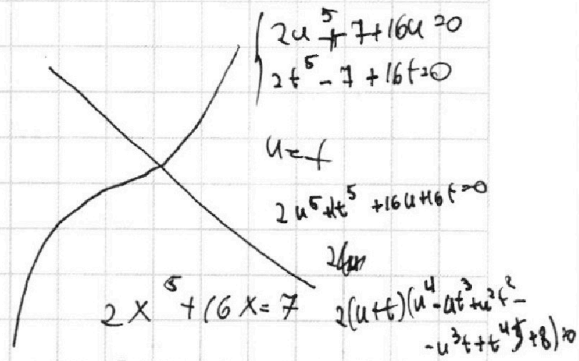 2u⁵+7+16u=0
2t⁵-7+16t=0
u=t
2u⁵+2t⁵+16u+16t=0
2x⁵+16x=7
2(u+t)(u⁴-ut³+u²t²-
-u³t+t⁴)+8)=0